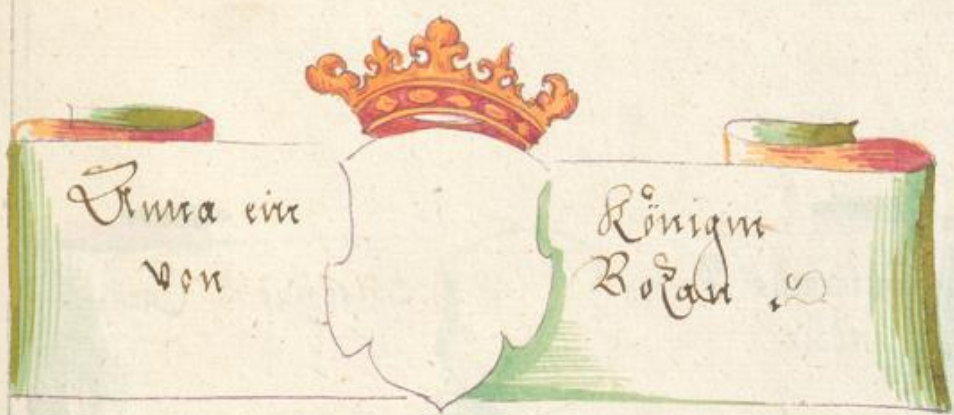 Anna ein Königin
von Bozan